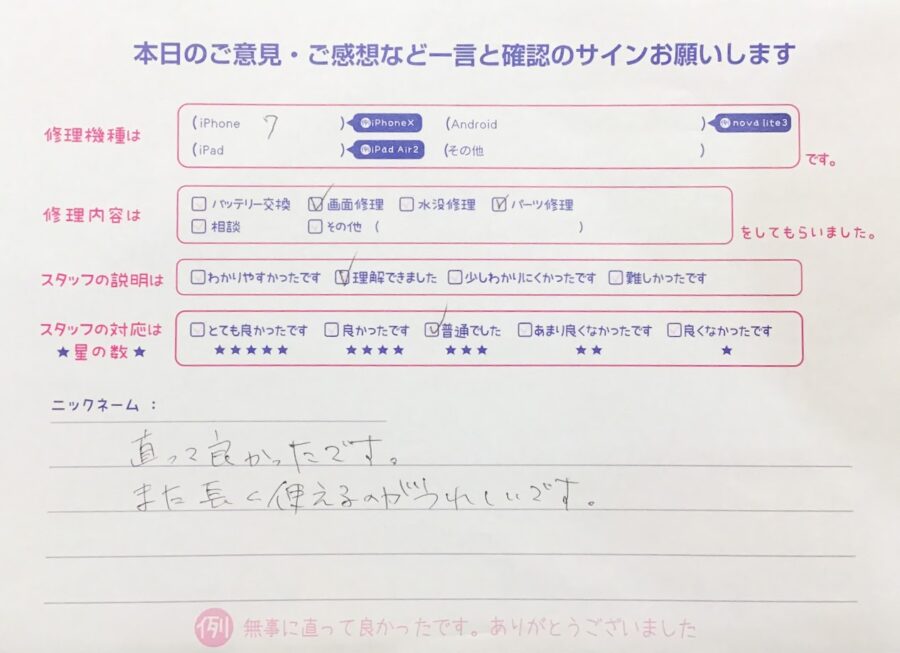 本日のご意見・ご感想など一言と確認のサインお願いします
修理機種は (iPhone 7 ) 例 iPhoneX (Android ) 例 nova lite3
(iPad ) 例 iPad Air2 (その他 ) です。
修理内容は □バッテリー交換 ☑画面修理 □水没修理 ☑パーツ修理
□相談 □その他 ( ) をしてもらいました。
スタッフの説明は □わかりやすかったです ☑理解できました □少しわかりにくかったです □難しかったです
スタッフの対応は □とても良かったです □良かったです ☑普通でした □あまり良くなかったです □良くなかったです
★星の数★ ★★★★★ ★★★★ ★★★ ★★ ★
ニックネーム：
直って良かったです。
また長く使えるのがうれしいです。
例 無事に直って良かったです。ありがとうございました